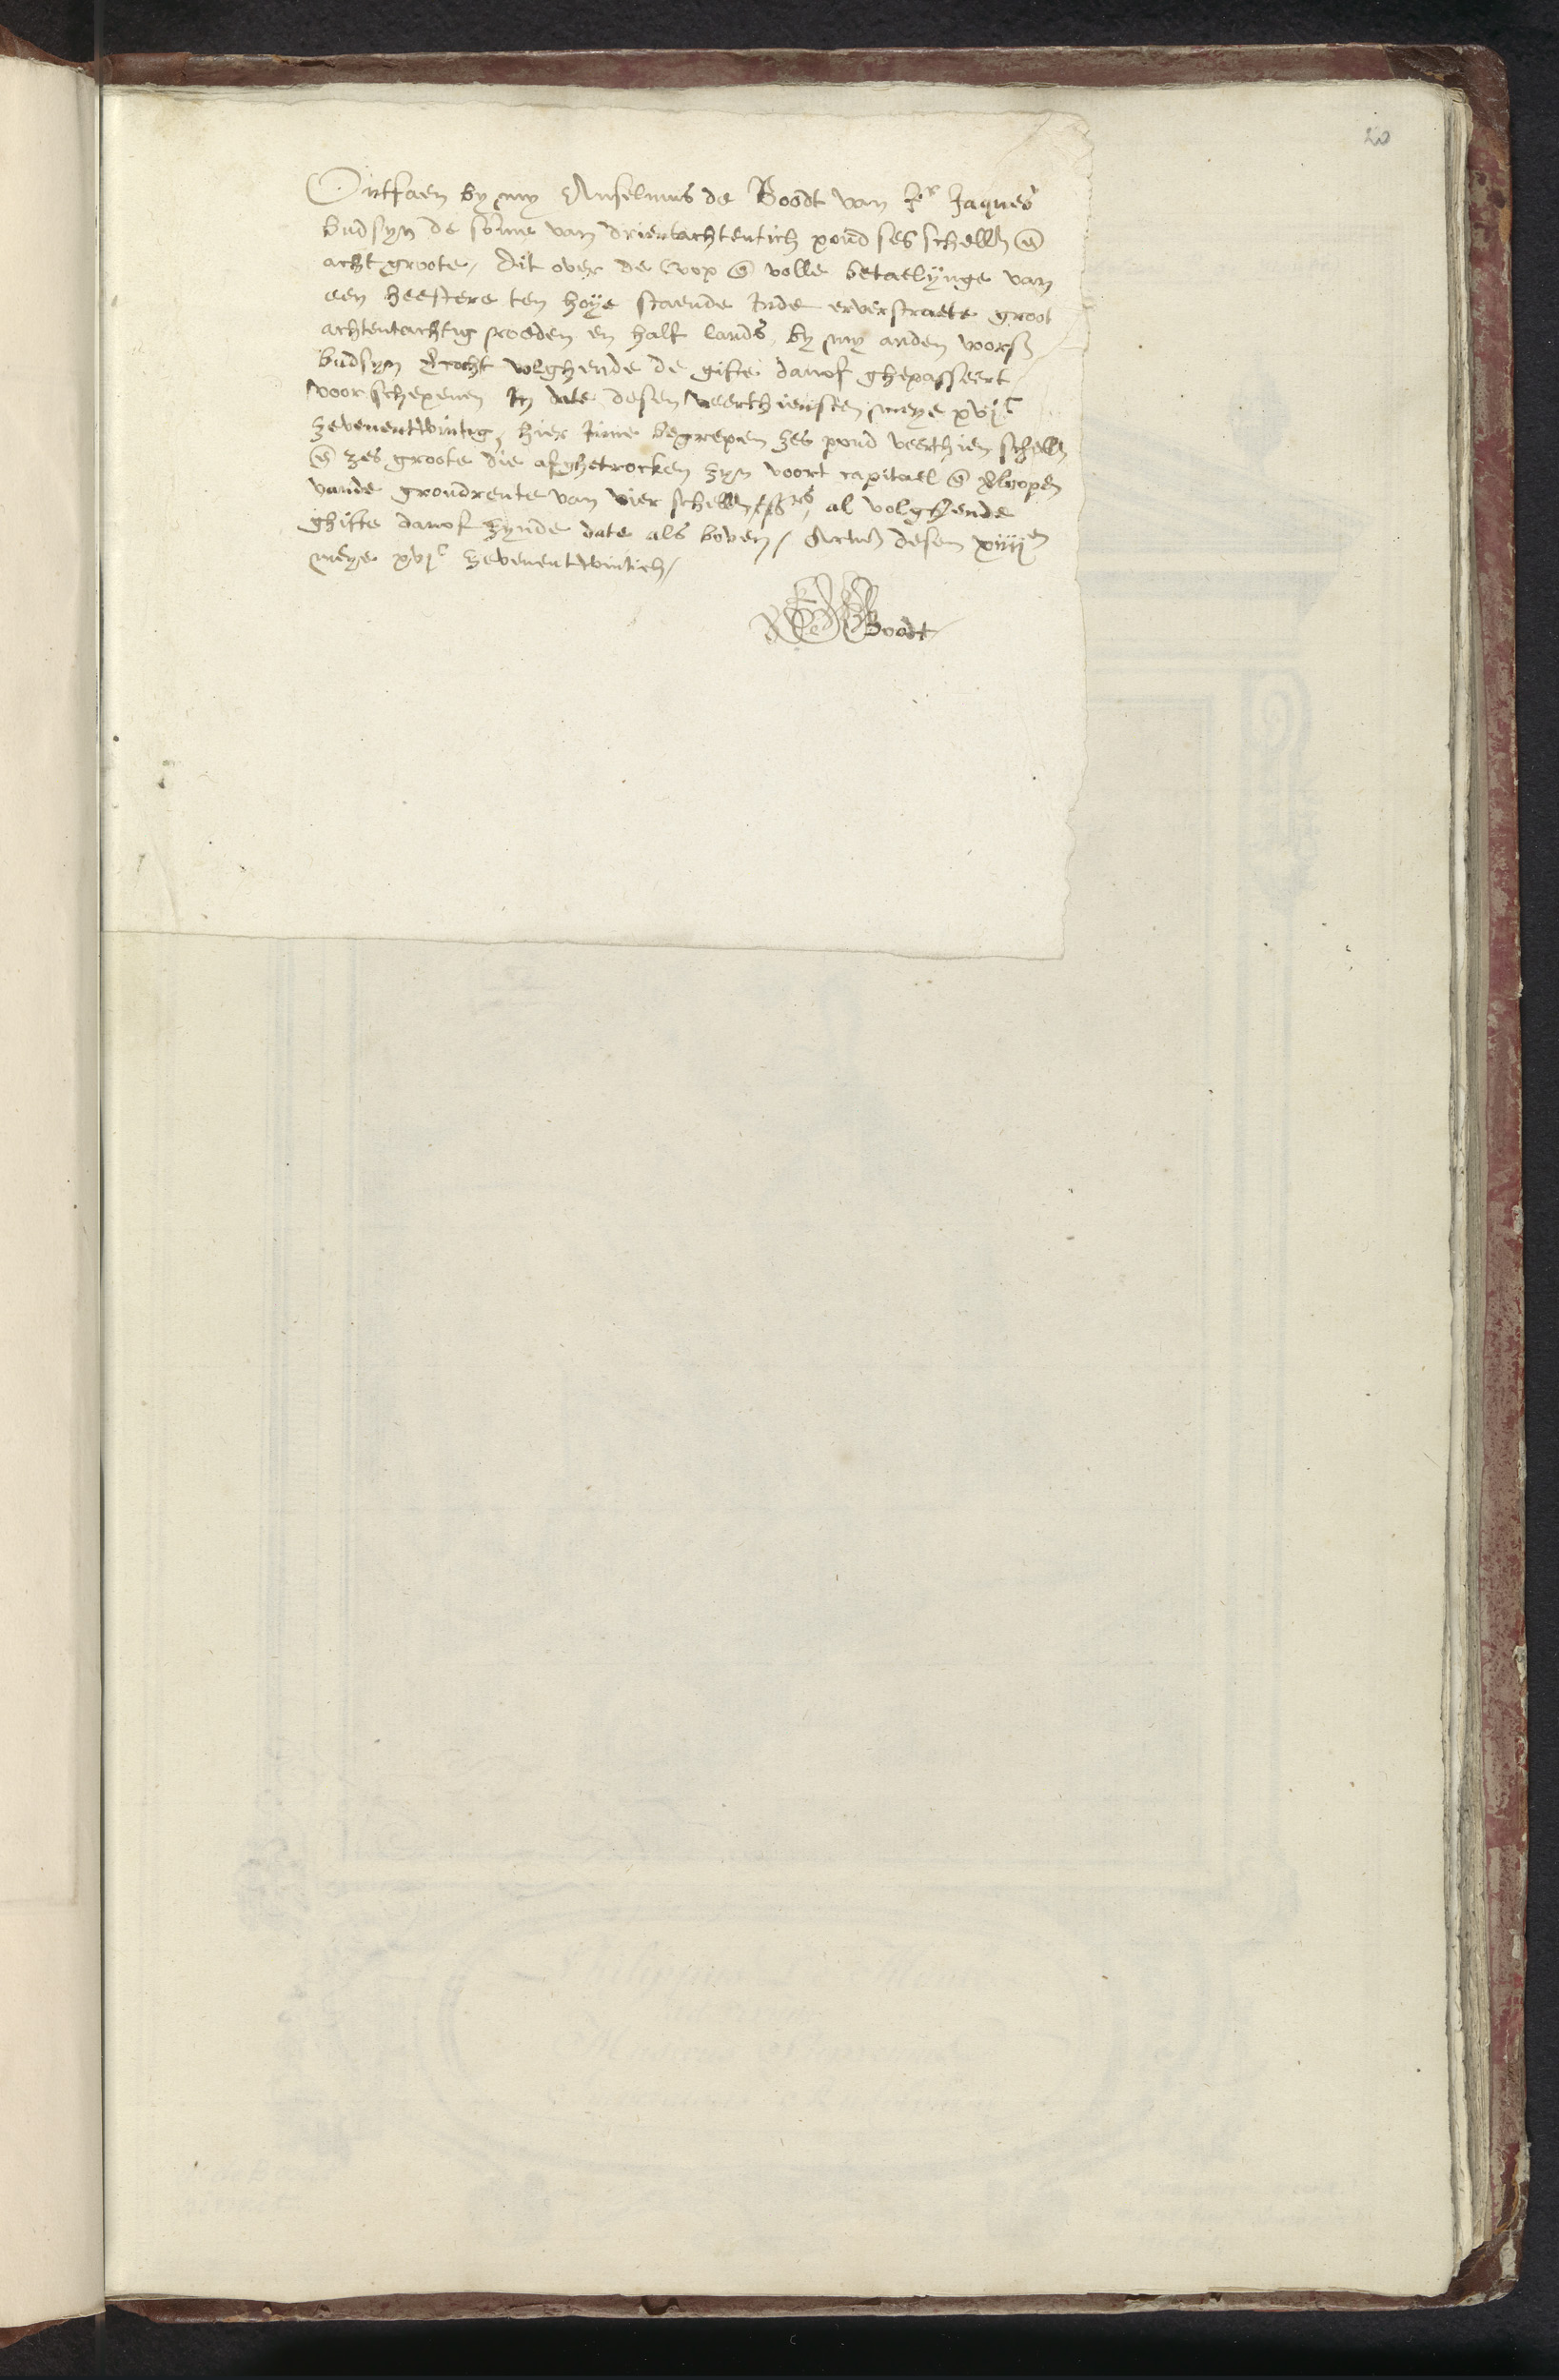 20
Ontfaen by my Anselmus de Boodt van Jr Jaques
budsyn de some van drientachtentich pond ses schelln en
acht groote, dit over de coop en volle betaelijnge van
een heestere ten hoije staende inde straete groot
achtentachtig rooden en half lands, by my anden voors
budsyn vercocht volghende de gifte danof ghepasseert
voor schepenen in date desen veerthiensten meye xvjc
zevenentwintig, hier inne begrepen zes pond veerthien schelln
en zes groote die afghetrocken zyn voort capitael en verloopen
vande grondrente van vier schelln sjrs, al volghende
ghifte danof zynde date als boven, Actum desen xiiijen
meye xvjc zevenentwintich,
Boodt